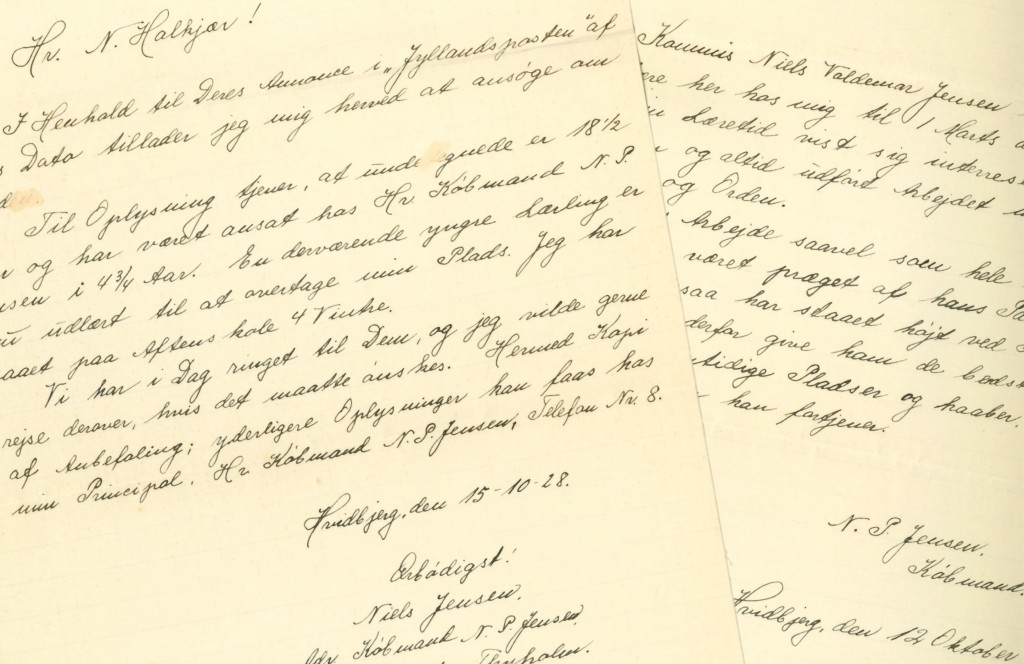 Hr. N. Halkjær!
I Henhold til Deres Annonce i „Jyllandsposten" af
s Dato tillader jeg mig herved at ansøge om
den.
Til Oplysning tjener, at unde gnede er 18 1/2
r og har været ansat hos Hr. Købmand N. P.
nsen i 4 3/4 Aar. En derværende yngre Lærling er
nu udlært til at overtage min Plads. Jeg har
gaaet paa Aftenskole 4 Vintre.
Vi har i Dag ringet til Dem, og jeg vilde gerne
rejse derover, hvis det maatte ønskes. Hermed Kopi
af Anbefaling; yderligere Oplysninger kan faas hos
min Principal, Hr. Købmand N. P. Jensen, Telefon Nr. 8.
Hvidbjerg, den 15-10-28.
Ærbødigst!
Niels Jensen.
Adr. Købmand N. P. Jensen,
Thyholm.
Kommis Niels Valdemar Jensen
ere her hos mig til 1 Marts
Læretid vist sig interres
og altid udført Arbejdet
og Orden.
Arbejde saavel som hele
været præget af hans
saa har staaet højt ved
derfor give ham de bedst
tidige Pladser og haaber,
han fortjener.
N. P. Jensen.
Købmand.
Hvidbjerg, den 12 Oktober